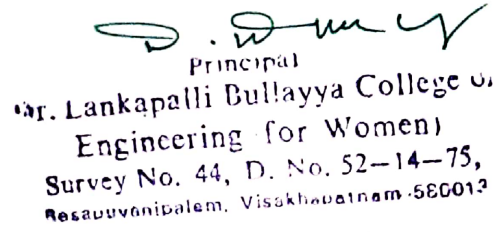 Principal
Dr. Lankapalli Bullayya College of
Engineering for Women)
Survey No. 44, D. No. 52-14-75,
Resapuvanipalem, Visakhapatnam-530013